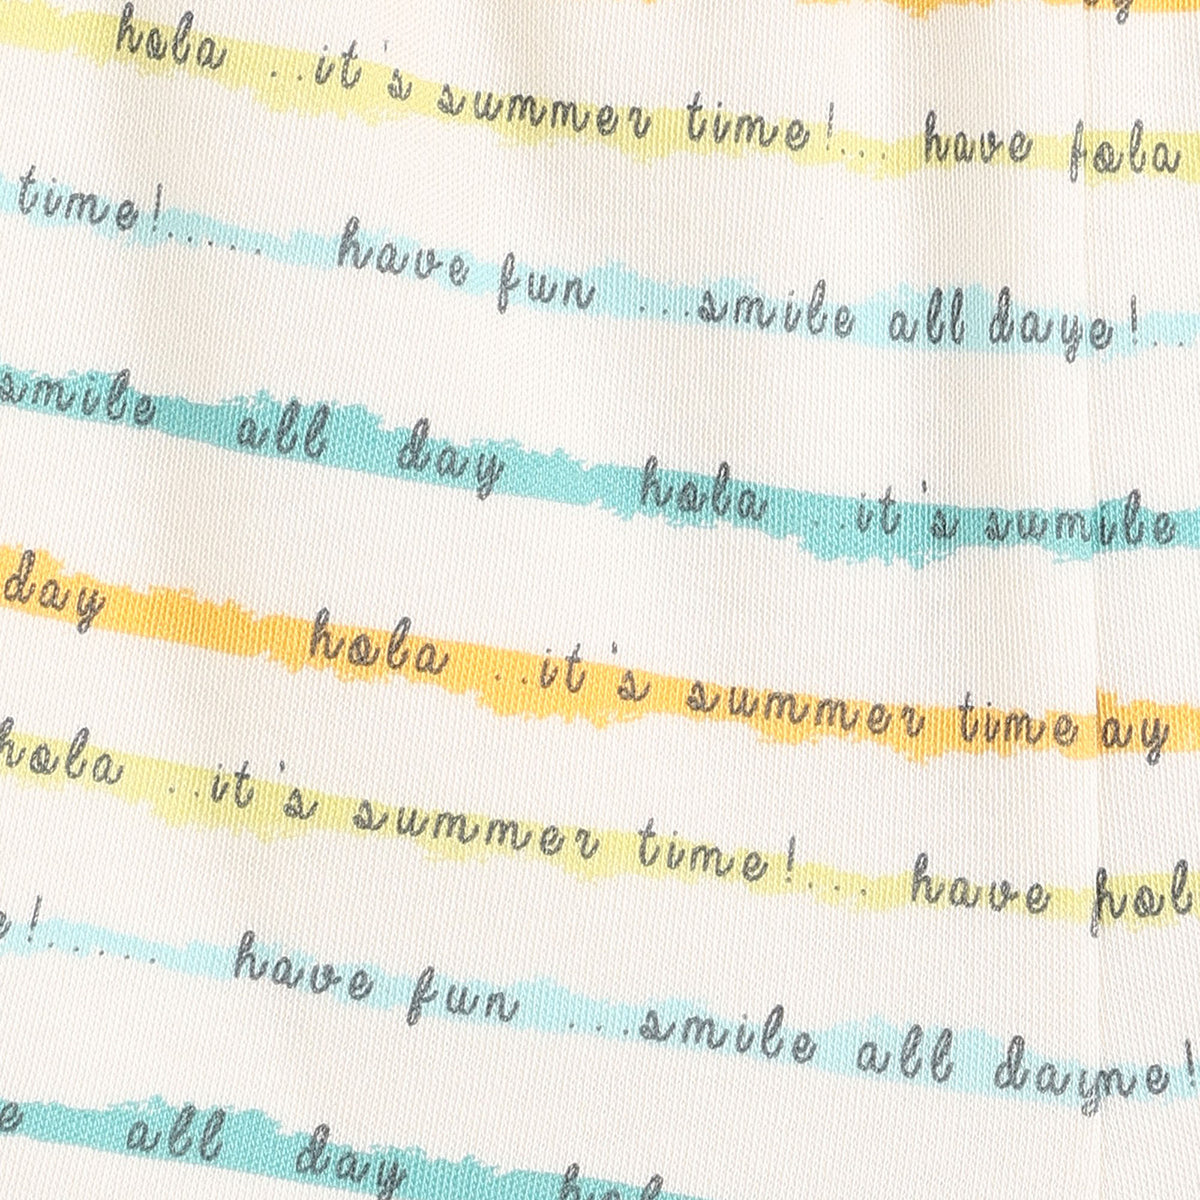 hola ..it's summer time!... have fola
time!..... have fun ...smile all daye!..
smile all day hola ..it's sumile
day hola ..it's summer time ay
hola ..it's summer time!... have hol
e!..... have fun ...smile all dayne!
e all day hola